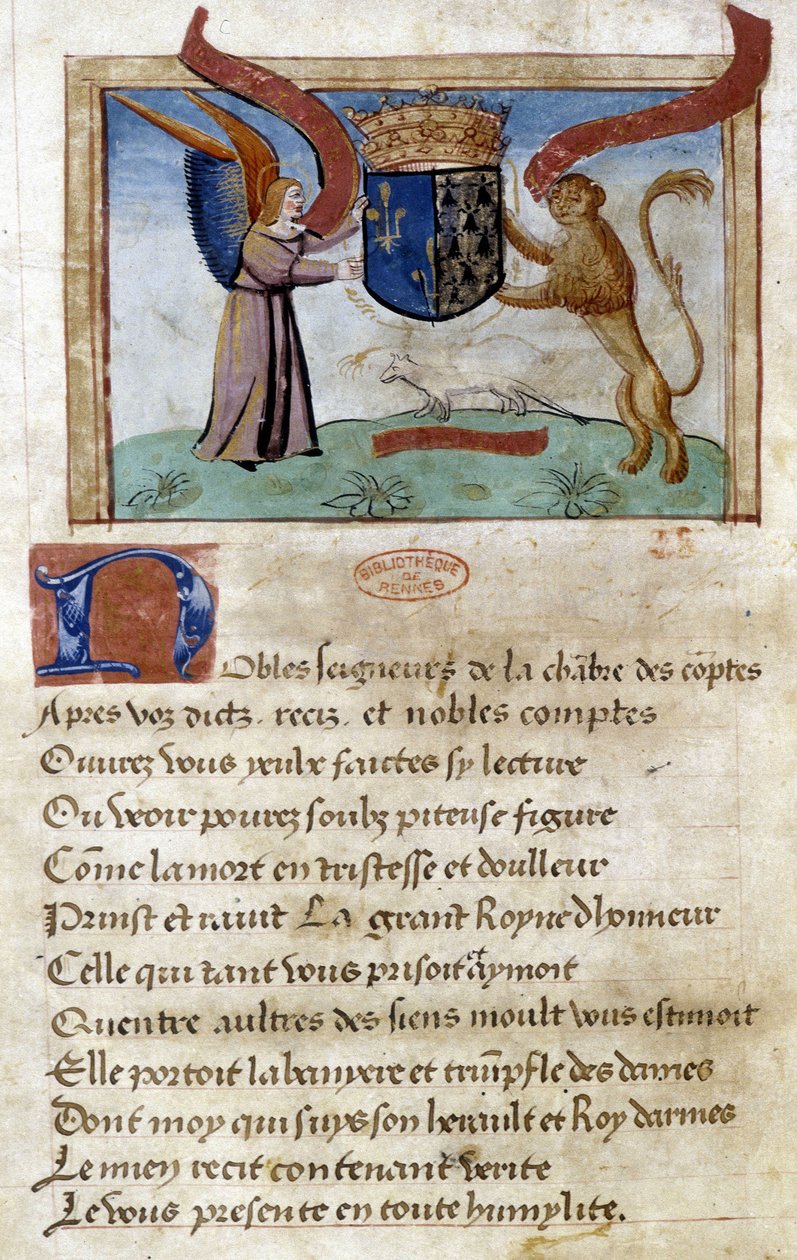 BIBLIOTHÈQUE
DE
RENNES
Nobles seigneurs de la chãbre des cõptes
Apres voz dictz. reciz. et nobles comptes
Ouurez vous yeulx faictes sy lecture
Ou veoir pourez soubz piteuse figure
Cõme la mort en tristesse et doulleur
Prinst et rauit La grant Royne dhonneur
Celle qui tant vous prisoit et aymoit
Quentre aultres des siens moult vous estimoit
Elle portoit la banyere et triũpfle des dames
Dont moy qui suys son herault et Roy darmes
Le mien recit contenant verite
Le vous presente en toute humylite.